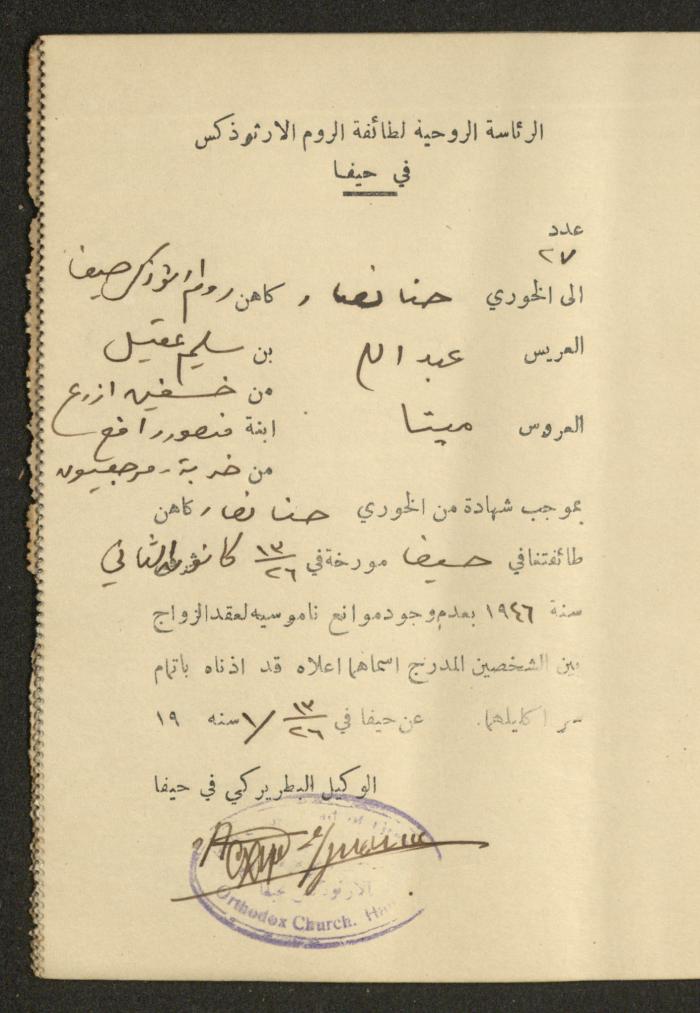 الرئاسة الروحية لطائفة الروم الارثوذكس
في حيفا
عدد
٢٧
الى الخوري حنا نصار كاهن روم ارثوذكس حيفا
العريس عبد الله بن سليم عقيل
من خسفين ازرع
العروس ميتا ابنة منصور رافع
من خربة مرجعيون
بموجب شهادة من الخوري حنا نصار كاهن
طائفتنا في حيفا مورخة في ١٣/٢٦ كانون الثاني
سنة ١٩٤٦ بعدم وجود موانع ناموسيه لعقد الزواج
بين الشخصين المدرج اسماهما اعلاه قد اذناه باتمام
سر اكليلهما. عن حيفا في ١٣/٢٦ /١ سنه ١٩
الوكيل البطريركي في حيفا
الارثوذكس حيفا
Orthodox Church. Hai